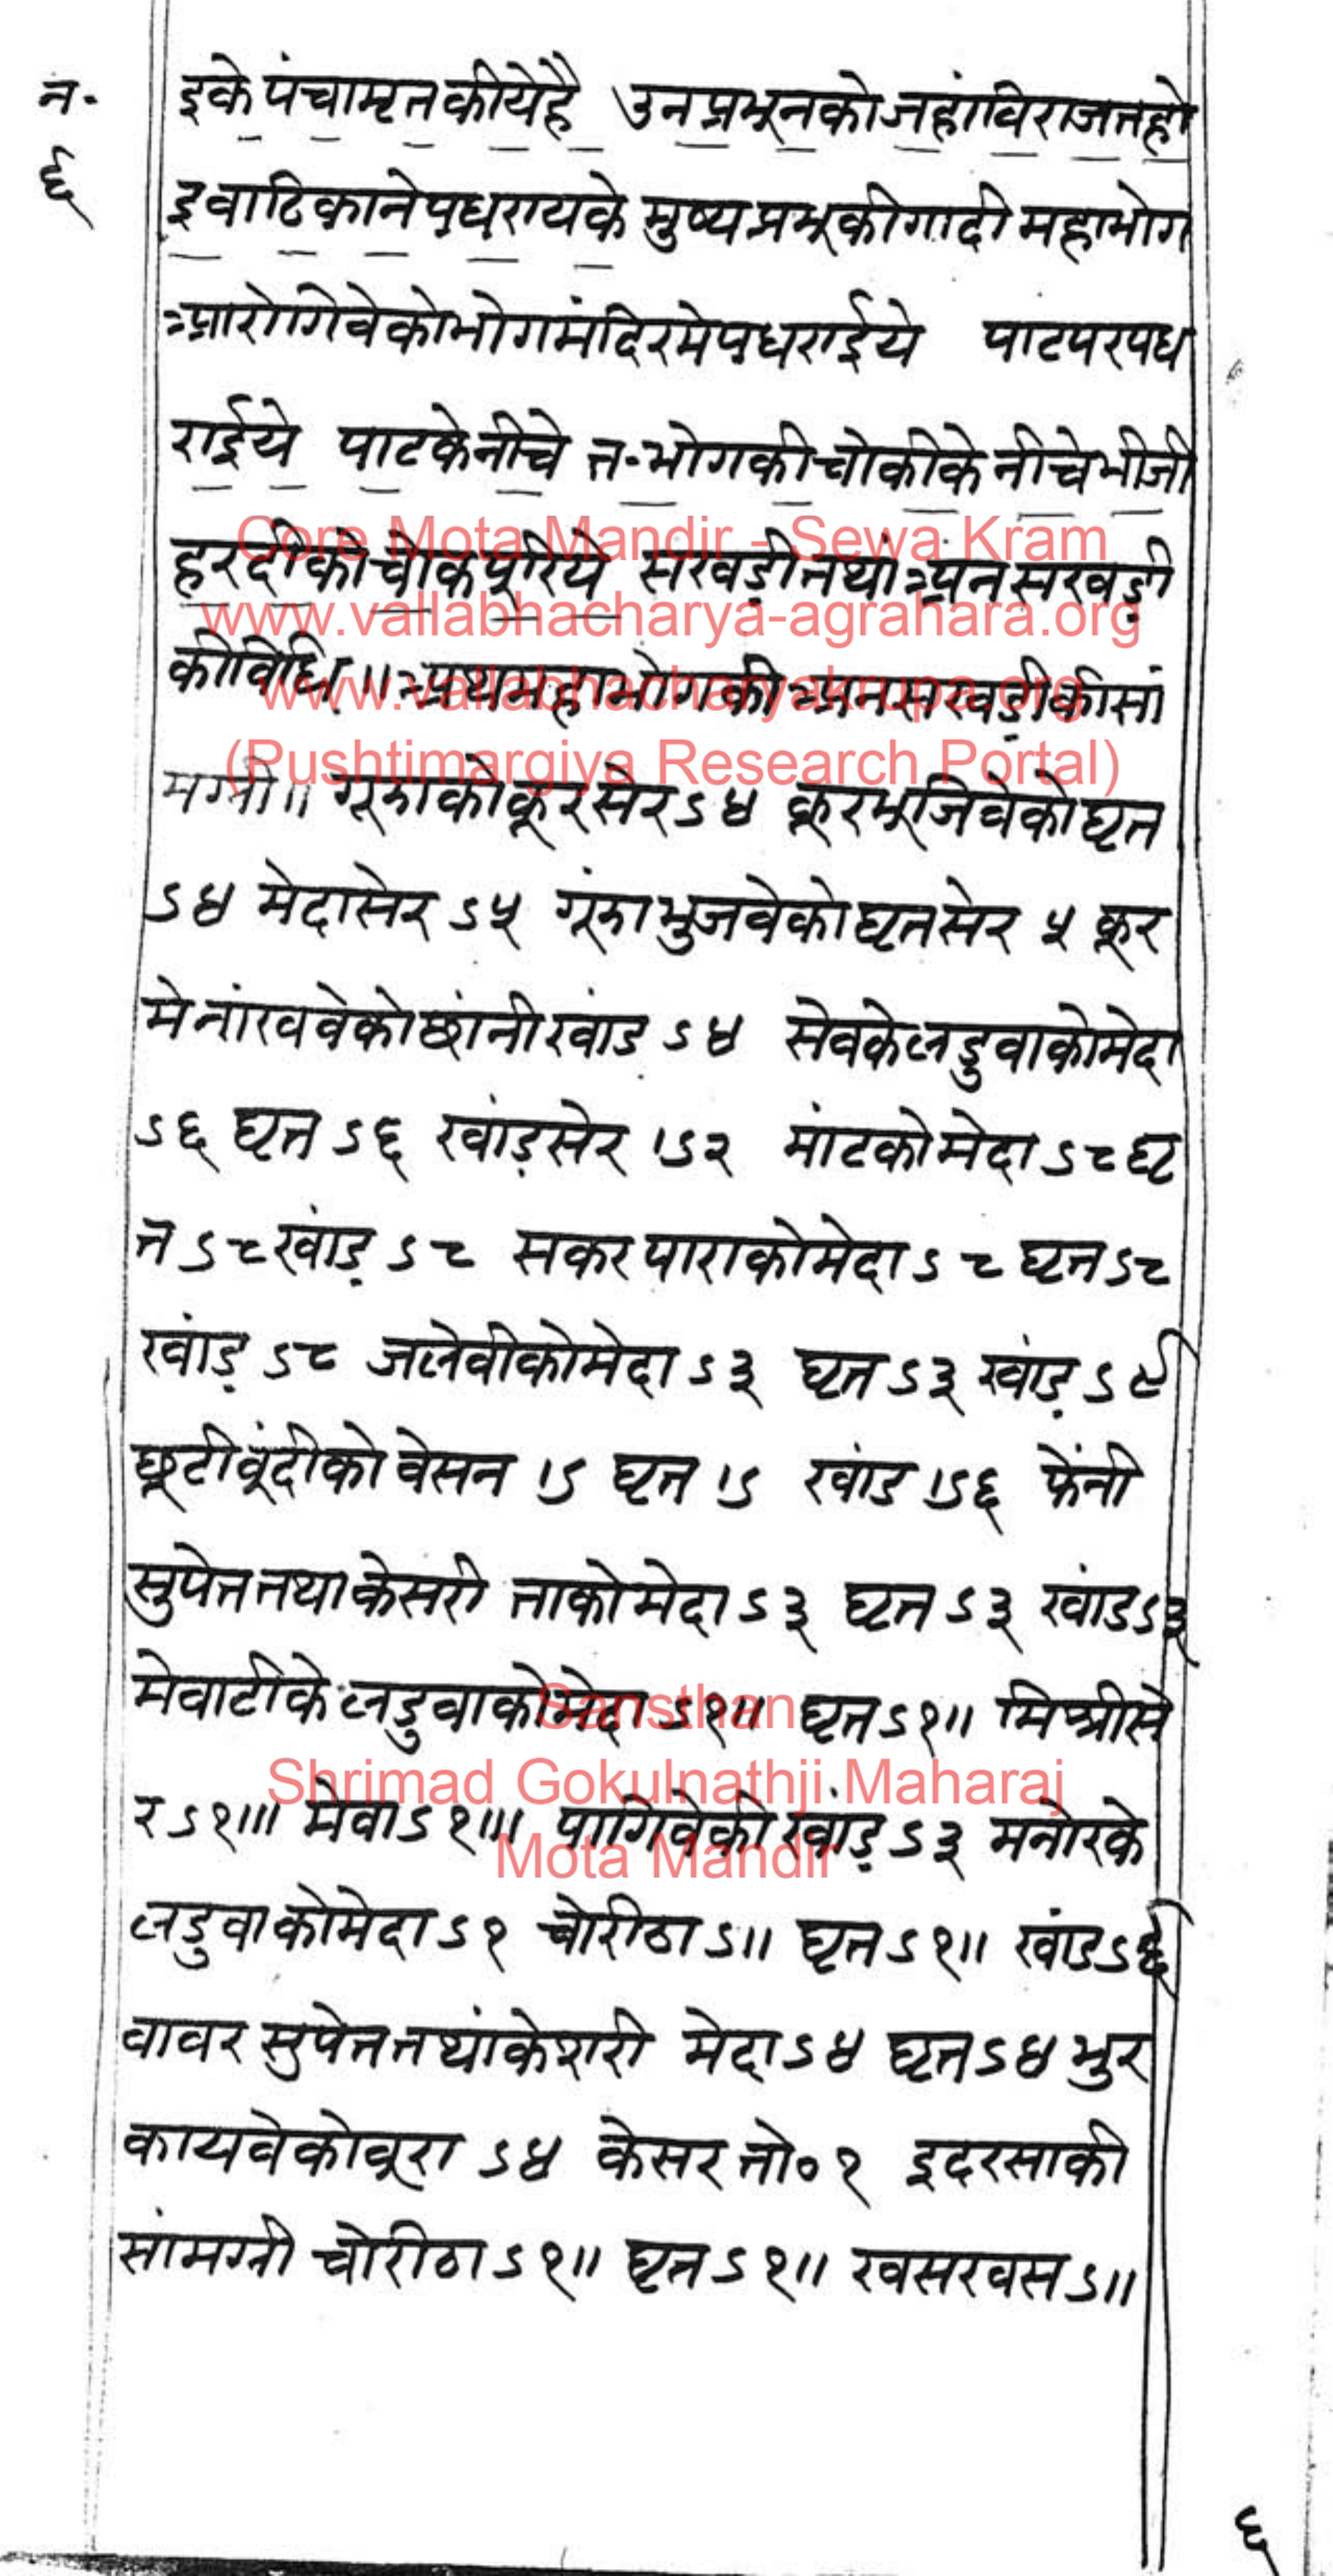 न॰
६
इके पंचामृत कीये है उन प्रभून को जहां विराजत हो
इ वा ठिकाने पधराय के मुष्य प्रभू की गादी महाभोग
आरोगिवे को भोग मंदिर मे पधराईये पाट पर पध
राईये पाट के नीचे त॰ भोग की चोकी के नीचे भीजी
हरदी को चोक पूरिये सखड़ी तथां अनसखड़ी
की विधि ॥ अथ महाभोग की अनसखड़ी की सां
मग्री ॥ गूझा को कूर सेर ऽ४ कूर भूजिवे को घृत
ऽ४ मेदा सेर ऽ५ गूंझा भुजवे को घृत सेर ५ कूर
मे नांखवे को छांनी खांड ऽ४ सेव के लडुवा को मेदा
ऽ६ घृत ऽ६ खांड़ सेर ।ऽ२ मांट को मेदा ऽ८ घृ
त ऽ८ खांड़ ऽ८ सकरपारा को मेदा ऽ८ घृत ऽ८
खांड़ ऽ८ जलेवी को मेदा ऽ३ घृत ऽ३ खांड़ ऽ९
छूटी वूंदी को वेसन ।ऽ घृत ।ऽ खांड ।ऽ६ फेंनी
सुपेत तथा केसरी ताको मेदा ऽ३ घृत ऽ३ खांड ऽ३
मेवाटी के लडुवा को मेदा ऽ१॥ घृत ऽ१॥ मिश्री से
र ऽ१॥। मेवा ऽ१॥। पागिवे की खांड़ ऽ३ मनोर के
लडुवा को मेदा ऽ१ चोरीठा ऽ॥ घृत ऽ१॥ खांड ऽ६
वावर सुपेत तथां केशरी मेदा ऽ४ घृत ऽ४ भुर
कायवे को वूरा ऽ४ केसर तो० १ इदरसा की
सांमग्री चोरीठा ऽ१॥ घृत ऽ१॥ खसखस ऽ॥
६
Core Mota Mandir - Sewa Kram
www.vallabhacharya-agrahara.org
www.vallabhacharyakrupa.org
(Pushtimargiya Research Portal)
Sansthan
Shrimad Gokulnathji Maharaj
Mota Mandir